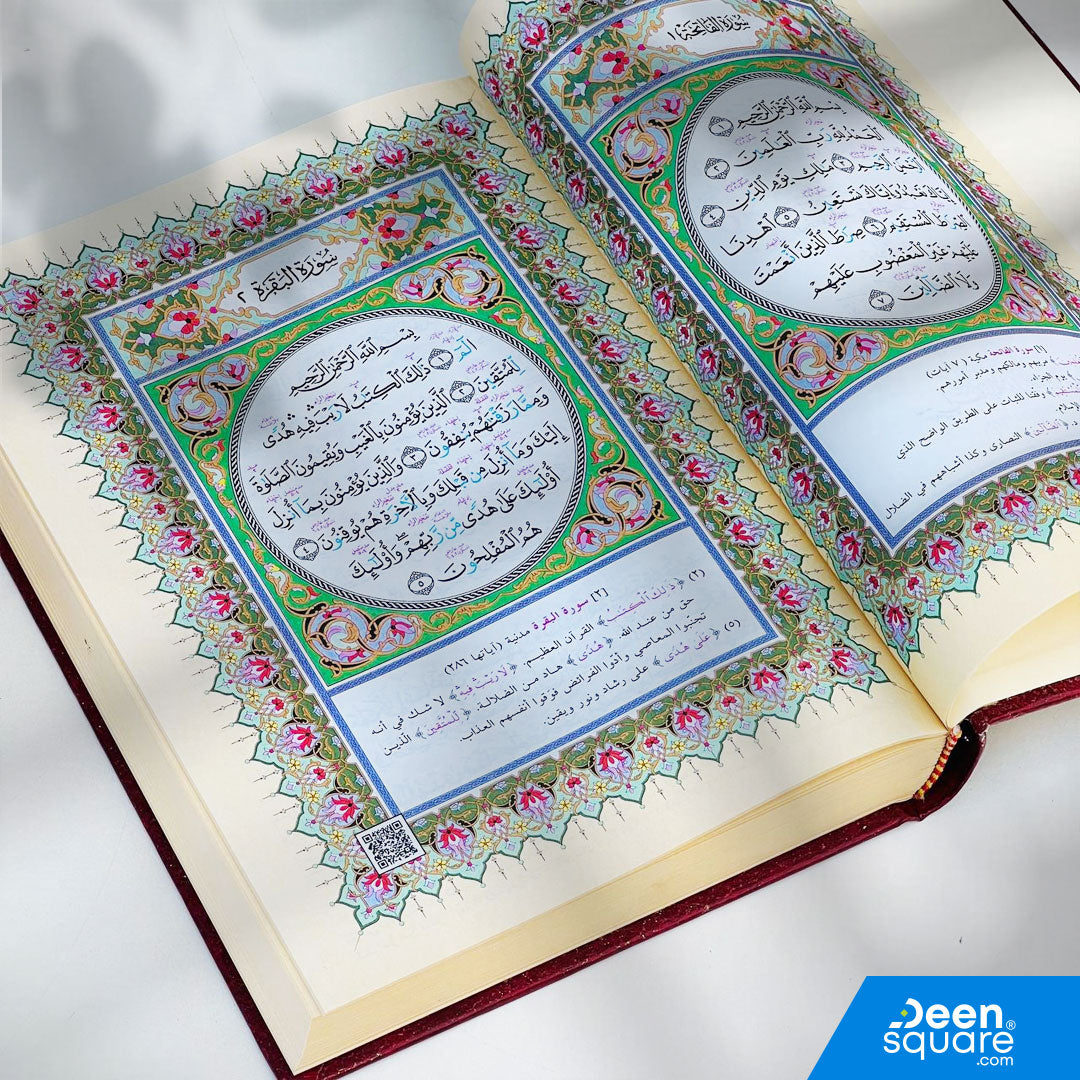 سورة الفاتحة ١
بِسْمِ ٱللَّهِ ٱلرَّحْمَٰنِ ٱلرَّحِيمِ ١
ٱلْحَمْدُ لِلَّهِ رَبِّ ٱلْعَٰلَمِينَ ٢
ٱلرَّحْمَٰنِ ٱلرَّحِيمِ ٣ مَٰلِكِ يَوْمِ ٱلدِّينِ ٤
إِيَّاكَ نَعْبُدُ وَإِيَّاكَ نَسْتَعِينُ ٥ ٱهْدِنَا
ٱلصِّرَٰطَ ٱلْمُسْتَقِيمَ ٦ صِرَٰطَ ٱلَّذِينَ أَنْعَمْتَ
عَلَيْهِمْ غَيْرِ ٱلْمَغْضُوبِ عَلَيْهِمْ
وَلَا ٱلضَّآلِّينَ ٧
[١] سورة الفاتحة مكية (٧ آيات)
مربيهم ومالكهم ومدبر أمورهم
وفقنا للثبات على الطريق الواضح الذي
النصارى وكذا أشباههم في الضلال
سورة البقرة ٢
بِسْمِ ٱللَّهِ ٱلرَّحْمَٰنِ ٱلرَّحِيمِ
الٓمٓ ١ ذَٰلِكَ ٱلْكِتَٰبُ لَا رَيْبَ فِيهِ هُدًى
لِّلْمُتَّقِينَ ٢ ٱلَّذِينَ يُؤْمِنُونَ بِٱلْغَيْبِ وَيُقِيمُونَ ٱلصَّلَوٰةَ
وَمِمَّا رَزَقْنَٰهُمْ يُنفِقُونَ ٣ وَٱلَّذِينَ يُؤْمِنُونَ بِمَآ أُنزِلَ
إِلَيْكَ وَمَآ أُنزِلَ مِن قَبْلِكَ وَبِٱلْءَاخِرَةِ هُمْ يُوقِنُونَ ٤
أُو۟لَٰٓئِكَ عَلَىٰ هُدًى مِّن رَّبِّهِمْ وَأُو۟لَٰٓئِكَ
هُمُ ٱلْمُفْلِحُونَ ٥
[٢] سورة البقرة مدنية (آياتها ٢٨٦)
(٢) ﴿ذَلِكَ الْكِتَابُ﴾ القرآن العظيم. ﴿لَا رَيْبَ فِيهِ﴾ لا شك في أنه
حق من عند الله. ﴿هُدًى﴾ هاد من الضلالة. ﴿لِلْمُتَّقِينَ﴾ الذين
تجنبوا المعاصي وأدوا الفرائض فوقوا أنفسهم العذاب
(٥) ﴿عَلَى هُدًى﴾ على رشاد ونور ويقين.
Deen
square®
.com